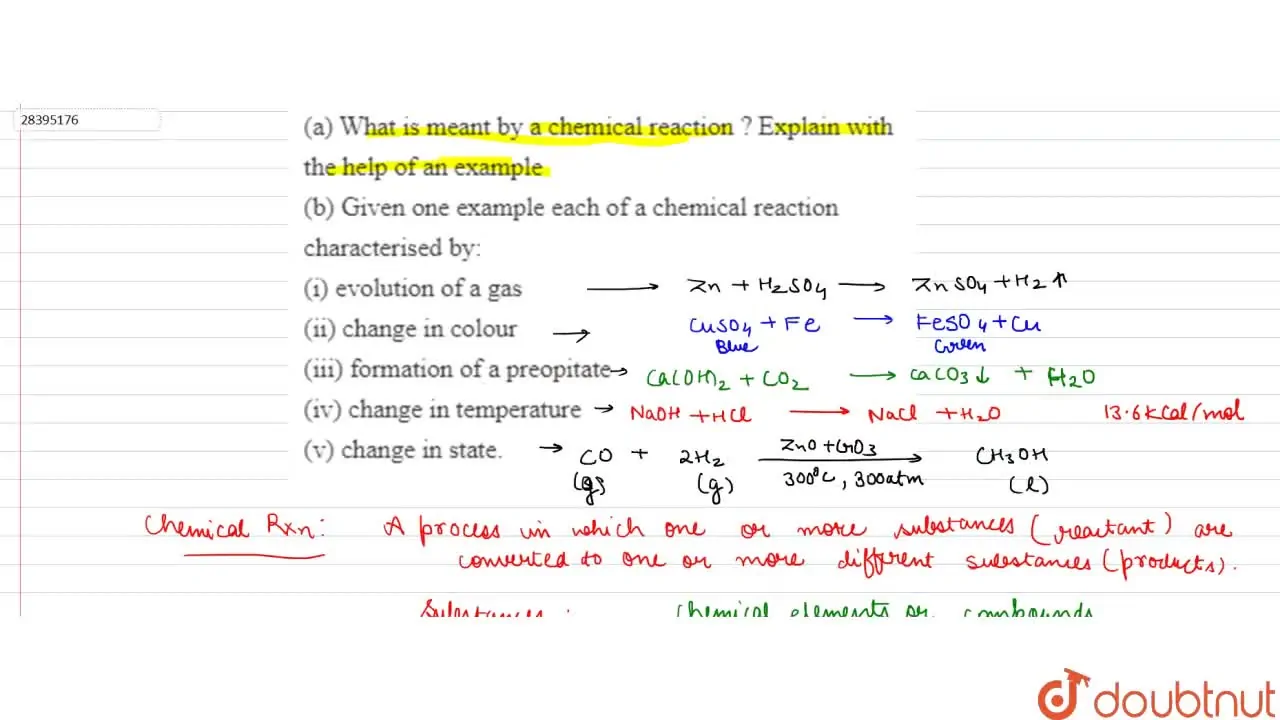 28395176
(a) What is meant by a chemical reaction ? Explain with
the help of an example
(b) Given one example each of a chemical reaction
characterised by:
(i) evolution of a gas → Zn + H2SO4 → ZnSO4 + H2 ↑
(ii) change in colour → CuSO4 + Fe → FeSO4 + Cu
Blue Green
(iii) formation of a preopitate → Ca(OH)2 + CO2 → CaCO3↓ + H2O
(iv) change in temperature → NaOH + HCl → NaCl + H2O 13.6 KCal/mol
(v) change in state. → CO + 2H2 → CH3OH
ZnO + CrO3
300°C, 300atm
(g) (g) (l)
Chemical Rxn: A process in which one or more substances (reactant) are
converted to one or more different substances (products).
Substances : chemical elements or compounds
doubtnut